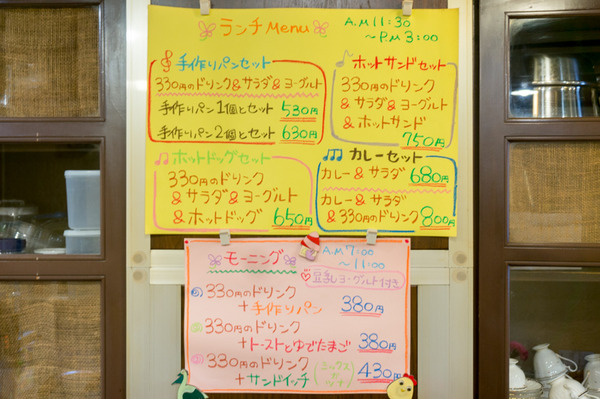 ランチMenu
A.M 11:30
～P.M 3:00
手作りパンセット
330円のドリンク&サラダ&ヨーグルト
手作りパン1個とセット 530円
手作りパン2個とセット 630円
ホットサンドセット
330円のドリンク
&サラダ&ヨーグルト
&ホットサンド
750円
ホットドッグセット
330円のドリンク
&サラダ&ヨーグルト
&ホットドッグ 650円
カレーセット
カレー&サラダ 680円
カレー&サラダ
&330円のドリンク 800円
モーニング
A.M 7:00
～11:00
豆乳ヨーグルト付き
① 330円のドリンク
+手作りパン 380円
② 330円のドリンク
+トーストとゆでたまご 380円
③ 330円のドリンク
+サンドイッチ (ミックス or ツナ) 430円